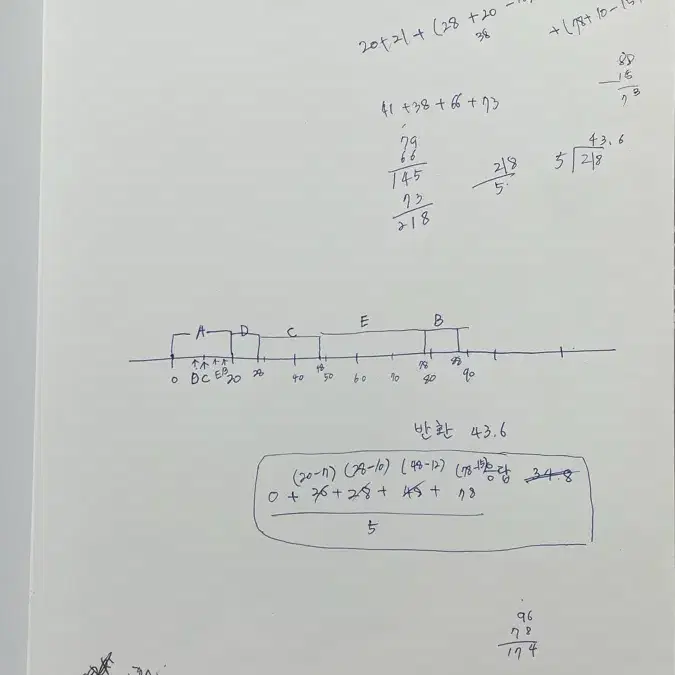 20+21 + (28 +20 -
38
+(78+10-15)
88
15
73
41 +38 + 66 + 73
79
66
145
73
218
218
5
43.6
5 218
A D C E B
0 D C E B 20 28 40 48 50 60 70 78 80 88 90
반환 43.6
(20-7) (28-10) (48-12) (78-15) 응답 34.8
0 + 20 + 28 + 48 + 78
5
96
78
174